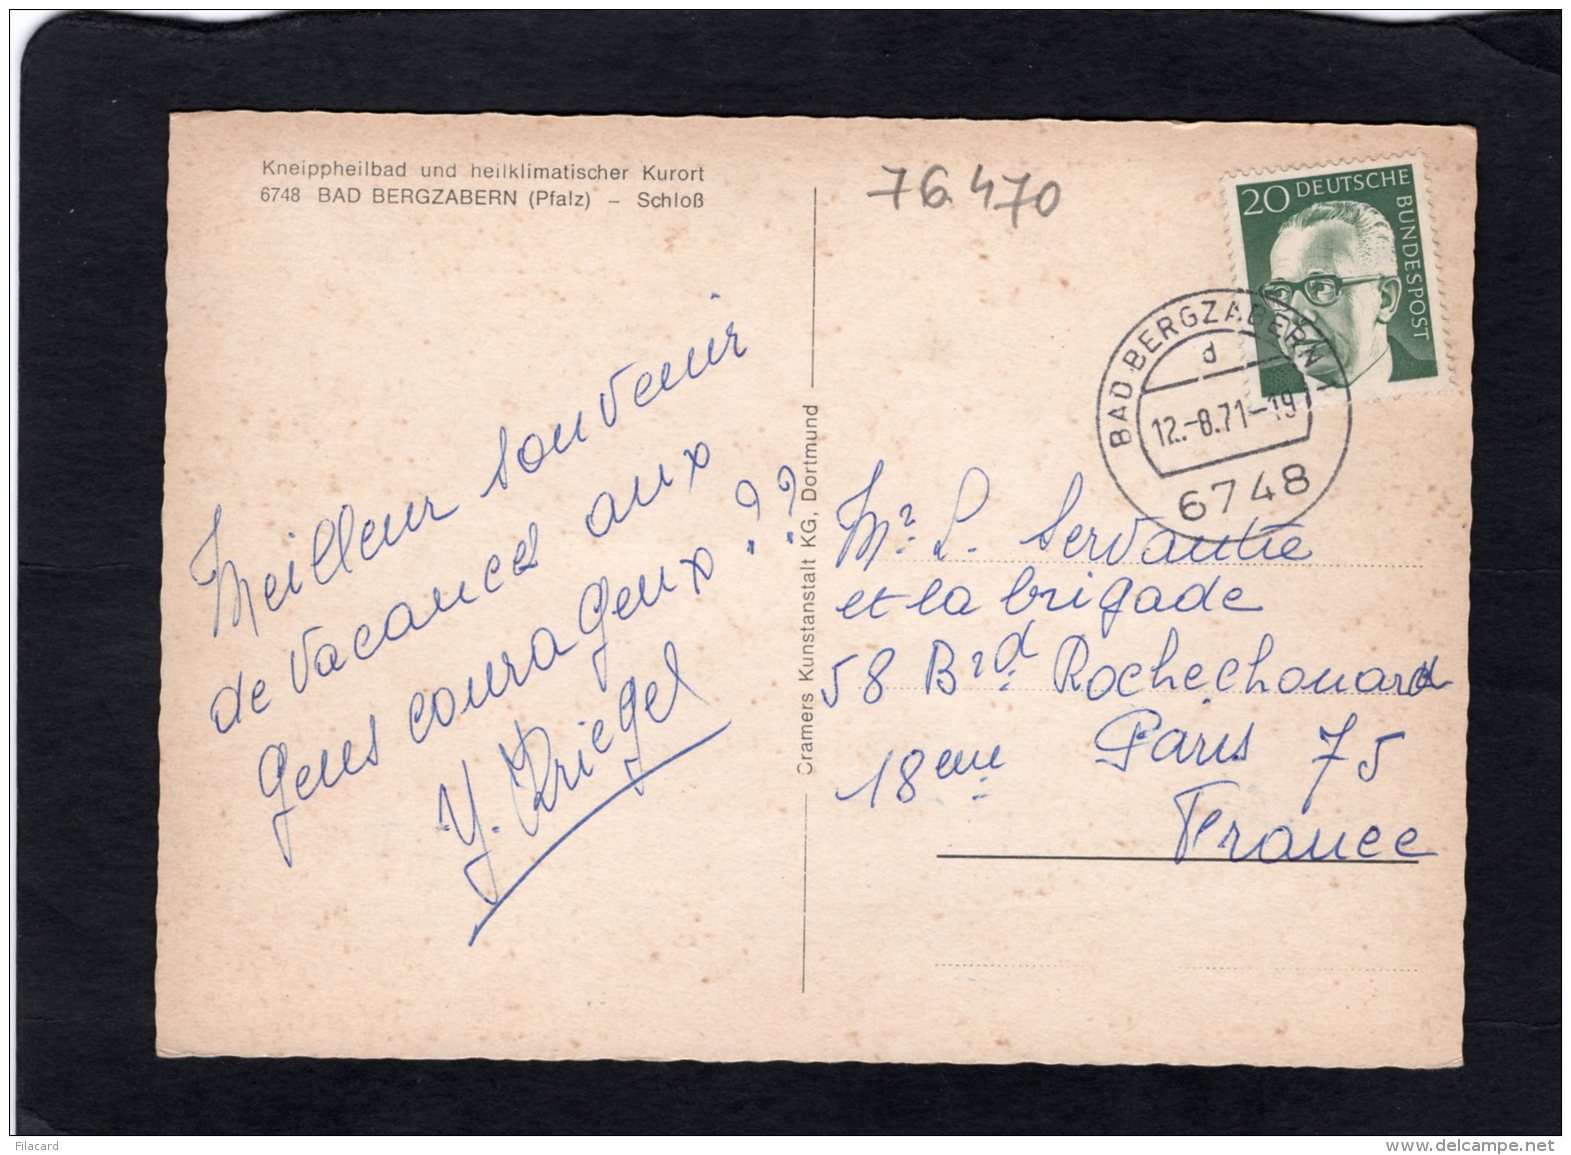 Kneippheilbad und heilklimatischer Kurort
6748 BAD BERGZABERN (Pfalz) – Schloß
76470
20 DEUTSCHE
BUNDESPOST
BAD BERGZABERN 1
d
12.-8.71-19
6748
Meilleur souvenir
de vacances aux
gens courageux ??
Y. Kriegel
Cramers Kunstanstalt KG, Dortmund
Mr. L. Servantie
et la brigade
58 Brd. Rochechouard
18eme Paris 75
France
Filacard
www.delcampe.net